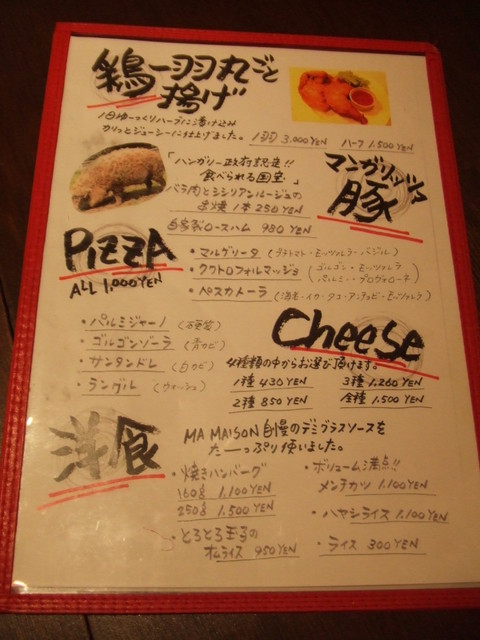 鶏一羽丸ごと
揚げ
1日ゆーっくりハーブに漬け込み
カリッとジューシーに仕上げました。
1羽 3,000YEN ハーフ 1,500YEN
「ハンガリー政府認定!!
食べられる国宝」
マンガリッツァ
豚
バラ肉とシシリアンルージュの
串焼 1本 250YEN
自家製ロースハム 980YEN
PiZZA
ALL 1,000YEN
・マルゲリータ (プチトマト・モッツァレラ・バジル)
・クワトロフォルマッジョ (ゴルゴン・モッツァレラ
パルミ・プロヴォローネ)
・ペスカトーラ (海老・イカ・タコ・アンチョビ・モッツァレラ)
Cheese
・パルミジャーノ (石更質)
・ゴルゴンゾーラ (青カビ)
・サンタンドレ (白カビ)
・ラングル (ウォッシュ)
4種類の中からお選び頂けます。
1種 430YEN 3種 1,260YEN
2種 850YEN 全種 1,500YEN
洋食
MA MAISON自慢のデミグラスソースを
たーーっぷり使いました。
・焼きハンバーグ
160g 1,100YEN
250g 1,500YEN
・とろとろ玉子の
オムライス 950YEN
・ボリューム満点!!
メンチカツ 1,100YEN
・ハヤシライス 1,100YEN
・ライス 300YEN